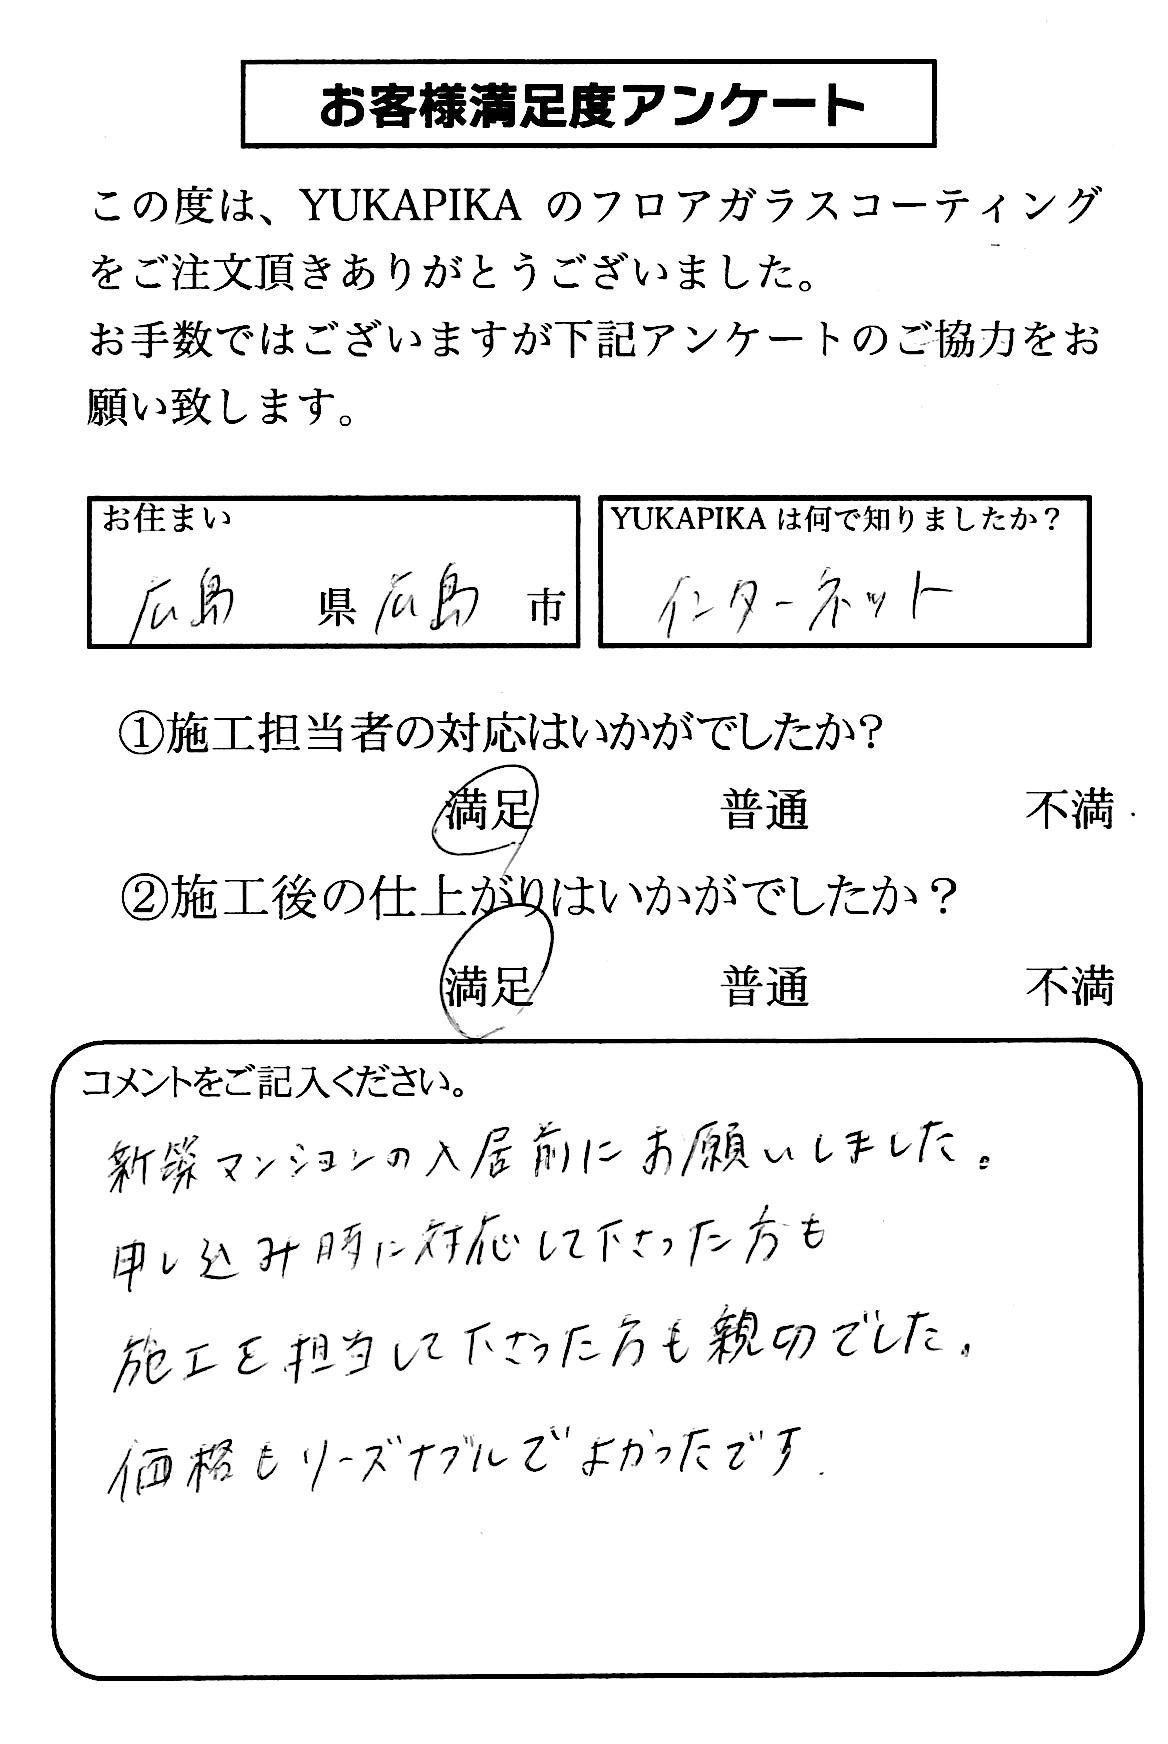 お客様満足度アンケート
この度は、YUKAPIKA のフロアガラスコーティング
をご注文頂きありがとうございました。
お手数ではございますが下記アンケートのご協力をお
願い致します。
お住まい
広島 県 広島 市
YUKAPIKA は何で知りましたか？
インターネット
①施工担当者の対応はいかがでしたか?
満足 普通 不満
②施工後の仕上がりはいかがでしたか？
満足 普通 不満
コメントをご記入ください。
新築マンションの入居前にお願いしました。
申し込み時に対応して下さった方も
施工を担当して下さった方も親切でした。
価格もリーズナブルでよかったです.